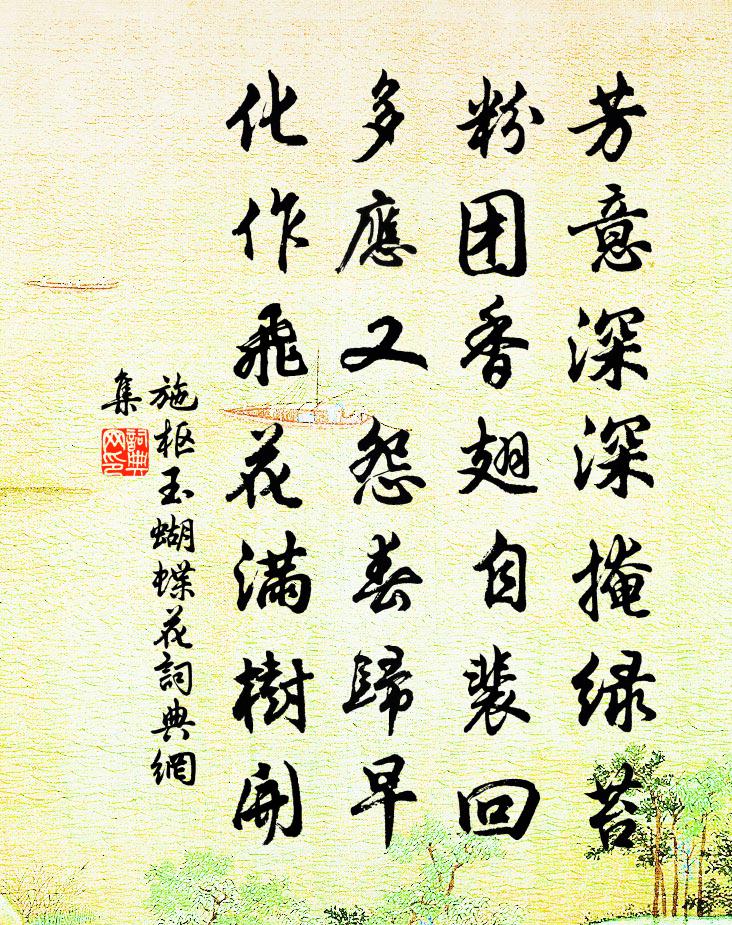 芳意深深掩绿苔
粉团香翅自裴回
多應又怨春歸早
化作飛花满樹開
施枢玉蝴蝶花詞典網
集
詞典網印